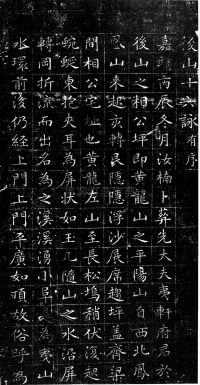 後山十六詠有序
嘉靖丙辰冬月汝楠卜葬先大夫夷軒府君於
後山之相公坪即黃龍山之平陽山自西北鳳
山来起亥轉艮隱隱浮沙展席趨坪盖齊梁
間相公宅址也黃龍左山至長松塢稍伏復起
蜿蜒東抱夾耳為屏狀如玉几隨山之水沿屏
轉岡折流而出名為之溪溪湧小阜為夷山
水環前後仍經上門上門平廣如頃故俗呼為